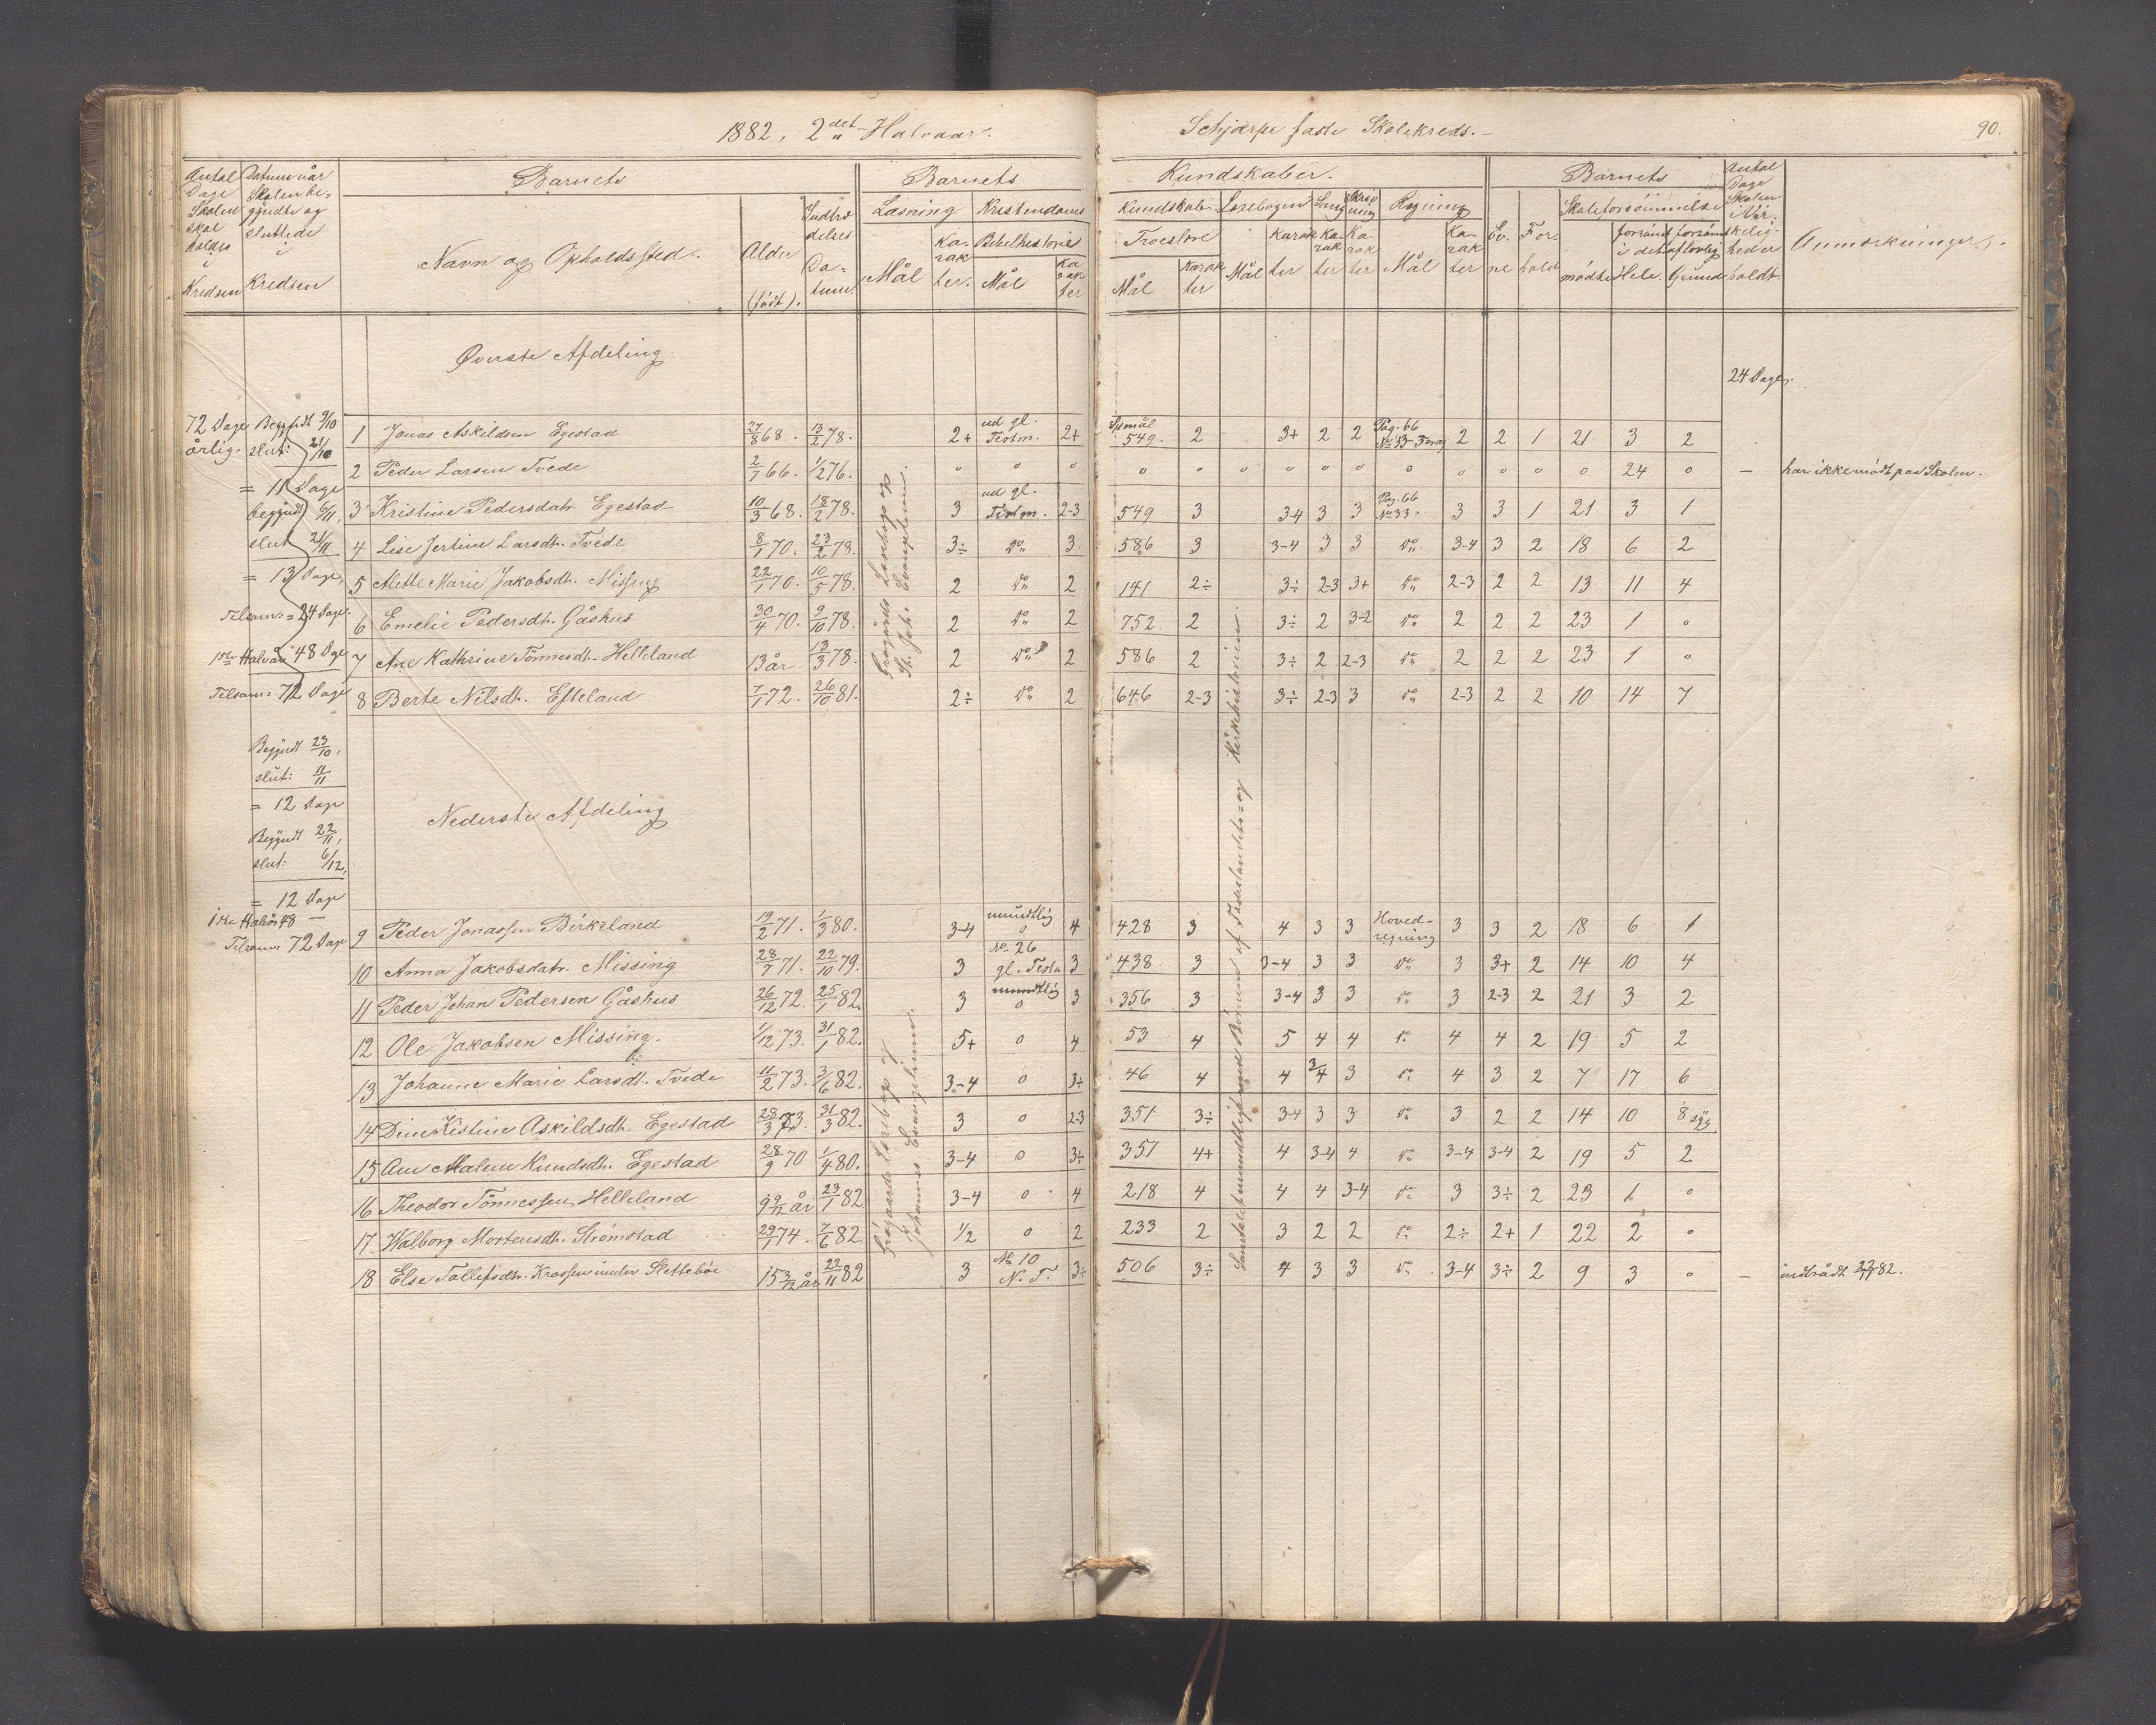 1882, 2det Halvaar.
Schjærpe faste Skolekreds.
90.
Antal Dage Skolen skal holdes i Kredsen
Datum når Skolen begyndte og sluttede i Kredsen
Barnets
Navn og Opholdssted.
Alder (født).
Indtrædelses Datum.
Barnets
Kundskaber.
Læsning
Mål
Karakter.
Kristendoms Kundskab
Bibelhistorie
Mål
Karakter
Troeslære
Mål
Karakter
Læsebogen
Mål
Karakter
Sang
Karakter
Skrivning
Karakter
Regning
Mål
Karakter
Barnets
Evne
Forhold
Skoleforsømmelse
mødte
forsømt i det Hele.
forsømt af lovlig Grund
Antal Dage Skolen i Virkeligheden holdt.
Anmærkninger.
Øverste Afdeling.
24 Dage.
72 Dage årlig.
Begyndt 9/10
slut: 21/10
= 11 Dage
begyndt 6/11,
slut 21/11
= 13 Dage,
Tilsam: = 24 Dage.
1ste Halvår 48 Dge
Tilsam: 72 Dage
1 Jonas Askildsen Egestad 27/8 68. 13/2 78. 2+ ud gl. Testm. 2+ Spsmål 549. 2 3+ 2 2 Pag. 66 No 33 2 2 1 21 3 2
2 Peder Larsen Tvede 2/7 66. 1/2 76. o o o o o o o o o o o o o o 24 o — har ikke mødt paa Skolen.
3 Kristine Pedersdatr. Egestad 10/3 68. 18/2 78. 3 ud gl. Testm. 2-3 549 3 3-4 3 3 Pag. 66 No 33. 3 3 1 21 3 1
4 Lise Jertine Larsdtr. Tvede 8/1 70. 23/2 78. 3÷ Do 3. 586 3 3-4 3 3 Do 3-4 3 2 18 6 2
5 Mette Marie Jakobsdtr. Missing 22/1 70. 10/5 78. 2 Do 2 141 2÷ 3÷ 2-3 3+ Do 2-3 2 2 13 11 4
6 Emelie Pedersdtr. Gåshus 30/4 70. 9/10 78. 2 Do 2 752. 2 3÷ 2 3-2 Do 2 2 2 23 1 o
7 Ane Kathrine Tönnesdtr. Helleland 13 år. 13/3 78. 2 Do 2 586 2 3÷ 2 2-3 Do 2 2 2 23 1 o
8 Berte Nilsdtr. Efteland 7/1 72. 26/10 81. 2÷ Do 2 646 2-3 3÷ 2-3 3 Do 2-3 2 2 10 14 7
Grøgårds Læsebog og St. Joh. Evangelium.
Begyndt 23/10,
slut: 11/11
= 12 Dage
Begyndt 22/11,
slut: 6/12,
= 12 Dage
1ste Halvår 48 —
Tilsam: 72 Dage
Nederste Afdeling
9 Peder Jonassen Birkeland 19/2 71. 1/3 80. 3-4 mundtlig o 4 428 3 4 3 3 Hovedregning 3 3 2 18 6 1
10 Anna Jakobsdatr. Missing 28/7 71. 22/10 79. 3 No 26 gl. Testa 3 438 3 3-4 3 3 Do 3 3+ 2 14 10 4
11 Peder Johan Pedersen Gåshus 26/12 72. 25/1 82. 3 mundtlig o 3 356 3 3-4 3 3 Do 3 2-3 2 21 3 2
12 Ole Jakobsen Missing. 1/12 73. 31/1 82. 5+ o 4 53 4 5 4 4 Do 4 4 2 19 5 2
13 Johanne Marie Larsdtr. Tvede 11/2 73. 3/6 82. 3-4 o 3÷ 46 4 4 3/4 3 Do 4 3 2 7 17 6
14 Dine Kistine Askildsdtr. Egestad 28/3 73. 31/3 82. 3 o 2-3 351 3÷ 3-4 3 3 Do 3 2 2 14 10 8 syg
15 Ane Malene Knudsdtr. Egestad 28/9 70 1/4 80. 3-4 o 3÷ 351 4+ 4 3-4 4 Do 3-4 3-4 2 19 5 2
16 Theodor Tönnessen Helleland 9 9/12 år 23/1 82 3-4 o 4 218 4 4 4 3-4 Do 3 3÷ 2 23 1 o
17 Walborg Mortensdtr. Strömstad 29/1 74. 7/6 82. 1/2 o 2 233 2 3 2 2 Do 2÷ 2+ 1 22 2 o
18 Else Tollefsdtr. Krossen under Slettebøe 15 3/12 år 22/11 82 3 No 10 N. T. 3÷ 506 3÷ 4 3 3 Do 3-4 3÷ 2 9 3 o — indtrådt 22/11 82.
Grøgaards Læsebog og Johannes Evangelium.
Samtale mundtlig med Börnene af Fædrelandets- og Kirkehistorien.